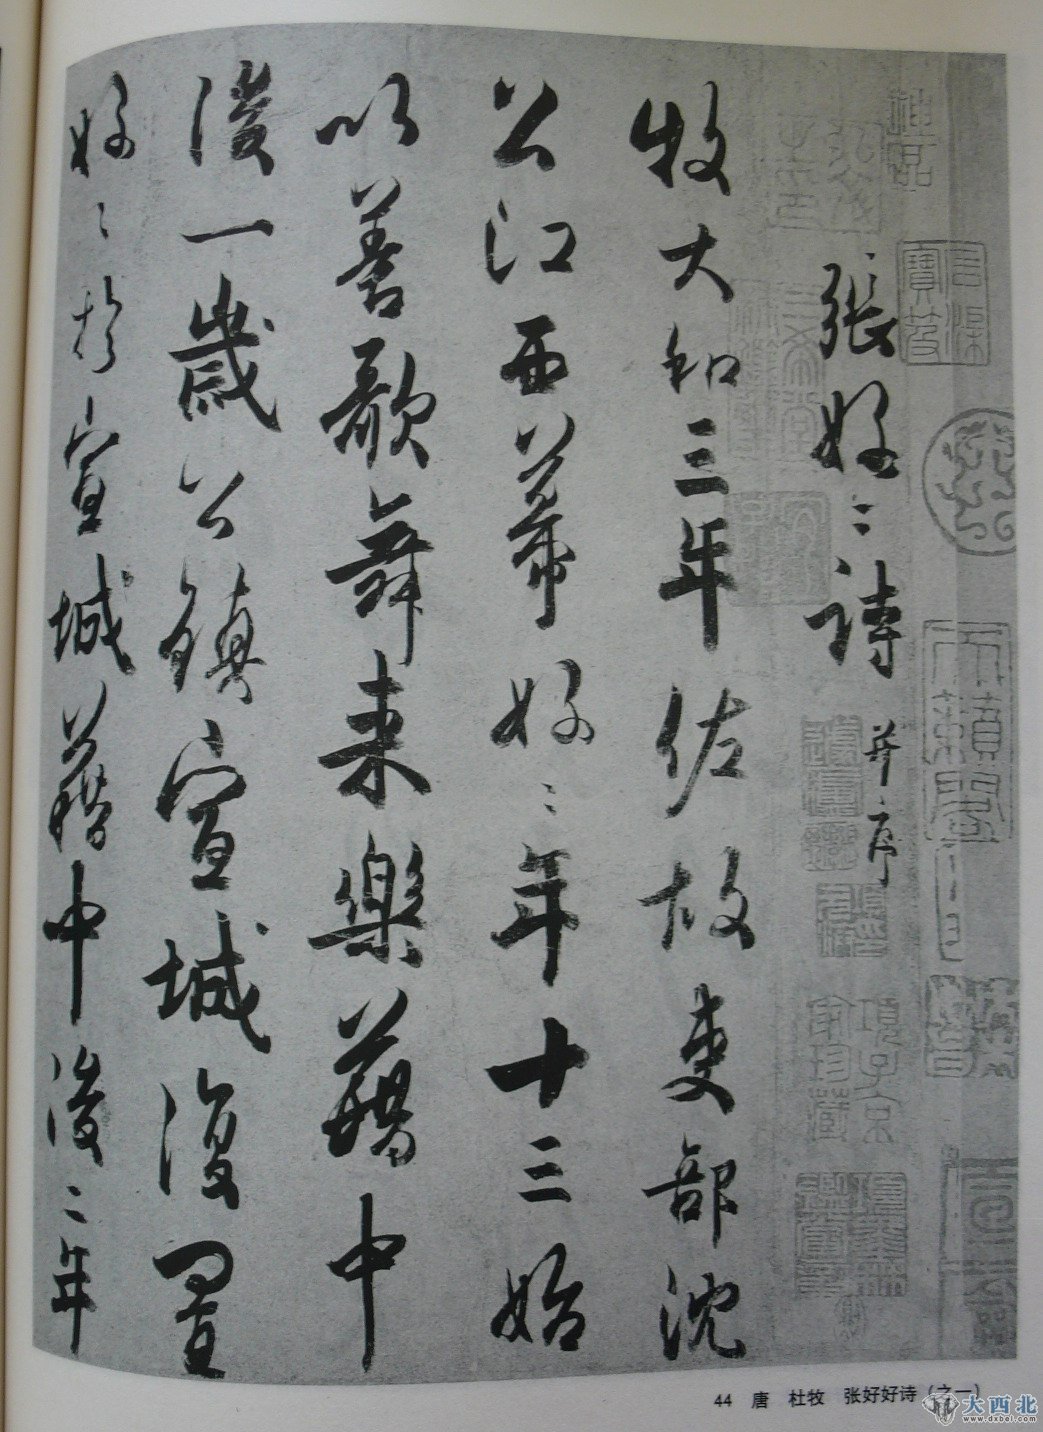 張好〻詩并序
牧大和三年佐故吏部沈
公江西幕好〻年十三始
以善歌舞来樂籍中
後一歲公鎮宣城復置
好〻於宣城籍中後二年
項子京
家珍藏
44 唐 杜牧 张好好诗(之一)
大西北
www.dxbei.com